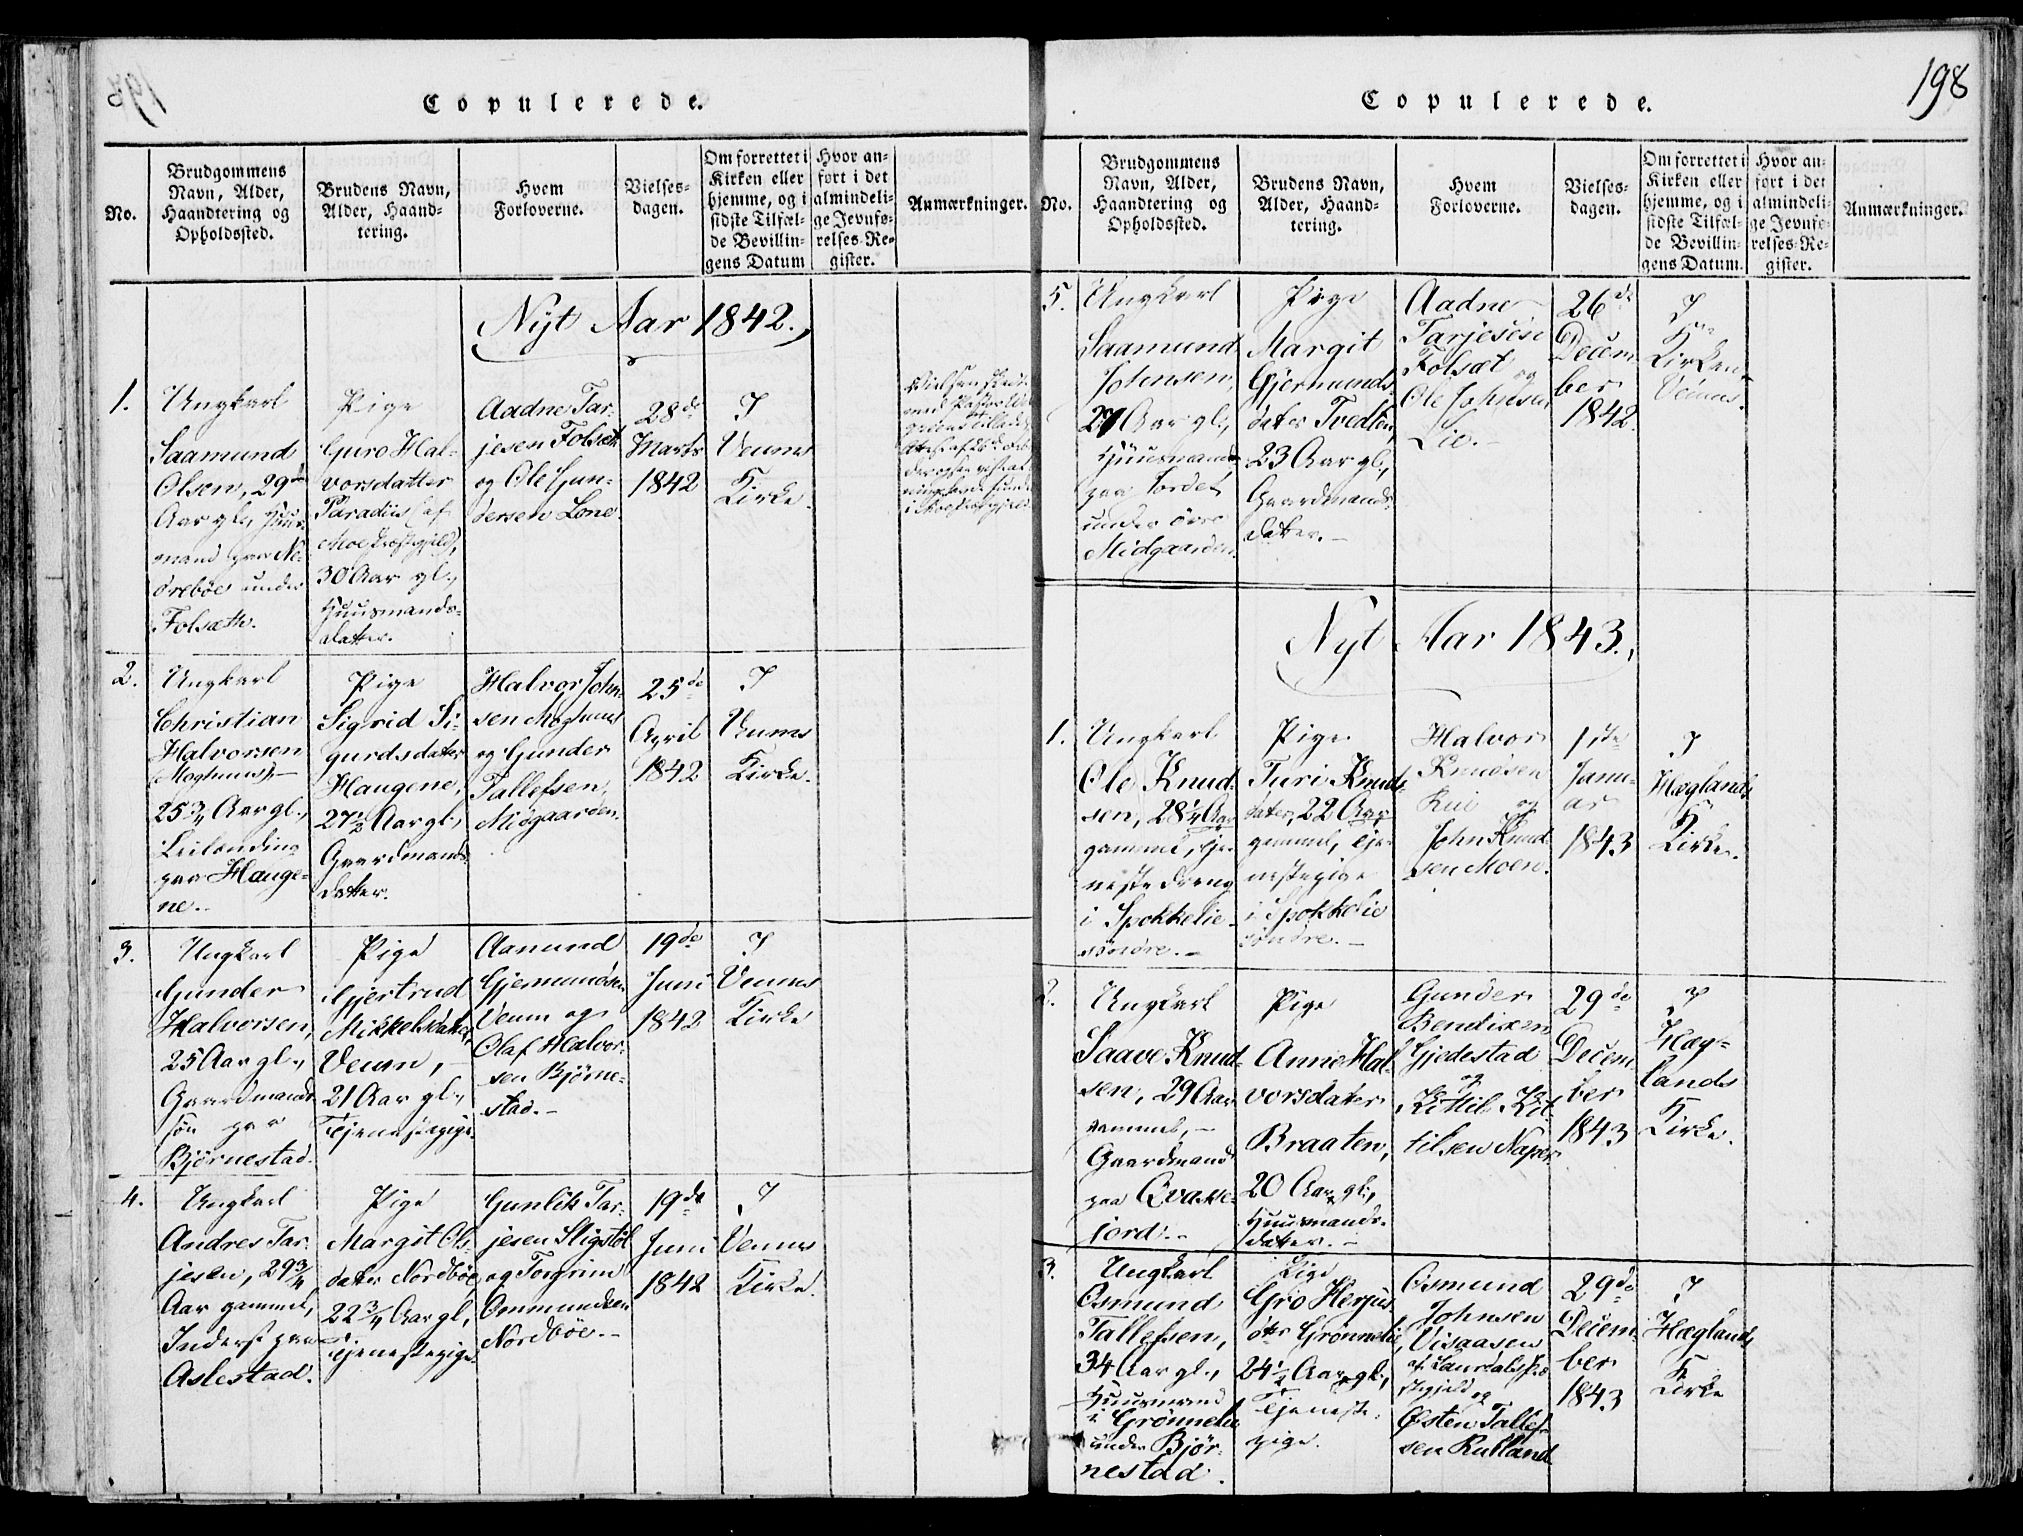 Copulerede.
No.
Brudgommens
Navn, Alder,
Haandtering og
Opholdssted.
Brudens Navn,
Alder, Haand-
tering.
Hvem
Forloverne.
Vielses-
dagen.
Om forrettet i
Kirken eller
hjemme, og i
sidste Tilfæl-
de Bevillin-
gens Datum
Hvor an-
ført i det
almindeli-
ge Jevnfø-
relses-Re-
gister.
Anmærkninger.
Nyt Aar 1842.
1.
Ungkarl
Saamund
Olsen, 29
Aar gl., Huus-
mand paa
under
Folsæth.
Pige
Guro Hal-
vorsdatter
Paradiis (af
Moe Præstegjeld),
30 Aar gl.,
Huusmands-
datter.
Aadne Tar-
jesen Folsæth
og Ole Gun-
dersen Lone.
28de
Marts
1842
I
Veums
Kirke.
2.
Ungkarl
Christian
Halvorsen
(Moghuus)
25¾ Aar gl.,
Leilending
paa Hauge-
ne.
Pige
Sigrid Si-
gurdsdater
Haugene,
27½ Aar gl.,
Gaardmands-
datter.
Halvor John-
sen Moghuus
og Gunder
Tallefsen,
Midgaarden.
25de
April
1842
I
Veums
Kirke.
3.
Ungkarl
Gunder
Halvorsen,
25 Aar gl.,
Gaardmands-
søn paa
Bjørnestad.
Pige
Gjertrud
Mikkelsdatter
Veum,
21 Aar gl.,
Tjenestepige.
Aamund
Gjermundsen
Veum og
Olaf Halvor-
sen Bjørne-
stad.
19de
Juni
1842
I
Veums
Kirke
4.
Ungkarl
Andres Tar-
jesen, 29¾
Aar gammel,
Inderst paa
Aslestad.
Pige
Margit Ols-
dater Nordbøe,
22¾ Aar gl.,
Tjenestepige.
Gunlik Tar-
jesen Sligstøl
og Torgrim
Ommundsen
Nordbøe.
19de
Juni
1842
I
Veums
Kirke.
198
Copulerede.
No.
Brudgommens
Navn, Alder,
Haandtering og
Opholdssted.
Brudens Navn,
Alder, Haand-
tering.
Hvem
Forloverne.
Vielses-
dagen.
Om forrettet i
Kirken eller
hjemme, og i
sidste Tilfæl-
de Bevillin-
gens Datum.
Hvor an-
ført i det
almindeli-
ge Jevnfø-
relses-Re-
gister.
Anmærkninger.
5.
Ungkarl
Saamund
Johnsen,
27 Aar gl.,
Huusmand
paa Jordet
under øvre
Midgaarden.
Pige
Margit
Gjermunds-
dater Tvedten,
23 Aar gl.,
Gaardmands-
datter.
Aadne
Tarjesen
Folsæt og
Ole Johnsen
Lio.
26de
Decem-
ber
1842.
I
Kirken
Veums.
Nyt Aar 1843.
1.
Ungkarl
Ole Knud-
sen, 28¼ Aar
gammel, Tje-
nestedreng
i Spokkelie
søndre.
Pige
Turi Knuds-
dater, 22 Aar
gammel, Tje-
nestepige
i Spokkelie
søndre.
Halvor
Knudsen
Rui og
John Knud-
sen Moen.
1ste
Janu-
ar
1843
I
Hæglands
Kirke.
2.
Ungkarl
Saave Knud-
sen, 29 Aar
gammel,
Gaardmand
paa Qvasse-
jord.
Pige
Anne Hal-
vorsdater
Braaten,
20 Aar gl.,
Huusmands-
datter.
Gunder
Bendixen
Gjedestad
og
Kittil Kit-
tilsen Naper
29de
Decem-
ber
1843
I
Hæg-
lands
Kirke.
3.
Ungkarl
Osmund
Tallefsen,
34 Aar gl.,
Huusmand
i Grønnelie
under Bjør-
nestad.
Pige
Gro Herjus-
dtr Grønnelie,
24½ Aar gl.,
Tjeneste-
pige.
Osmund
Johnsen
Visaasen
af Laurdals Præ-
stegjeld og
Østen Tallef-
sen Rubland
29de
Decem-
ber
1843
I
Hæglands
Kirke